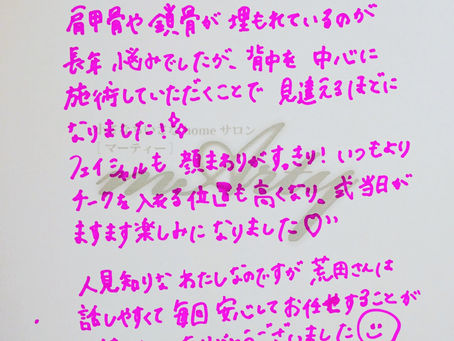 肩甲骨や鎖骨が埋もれているのが
長年悩みでしたが、背中を中心に
施術していただくことで見違えるほどに
なりました!
homeサロン
[マーティー]
フェイシャルも顔まわりがすっきり!いつもより
チークを入れる位置も高くなり、式当日が
ますます楽しみになりました♡
人見知りなわたしなのですが荒田さんは
話しやすくて毎回安心してお任せすることが
ございました